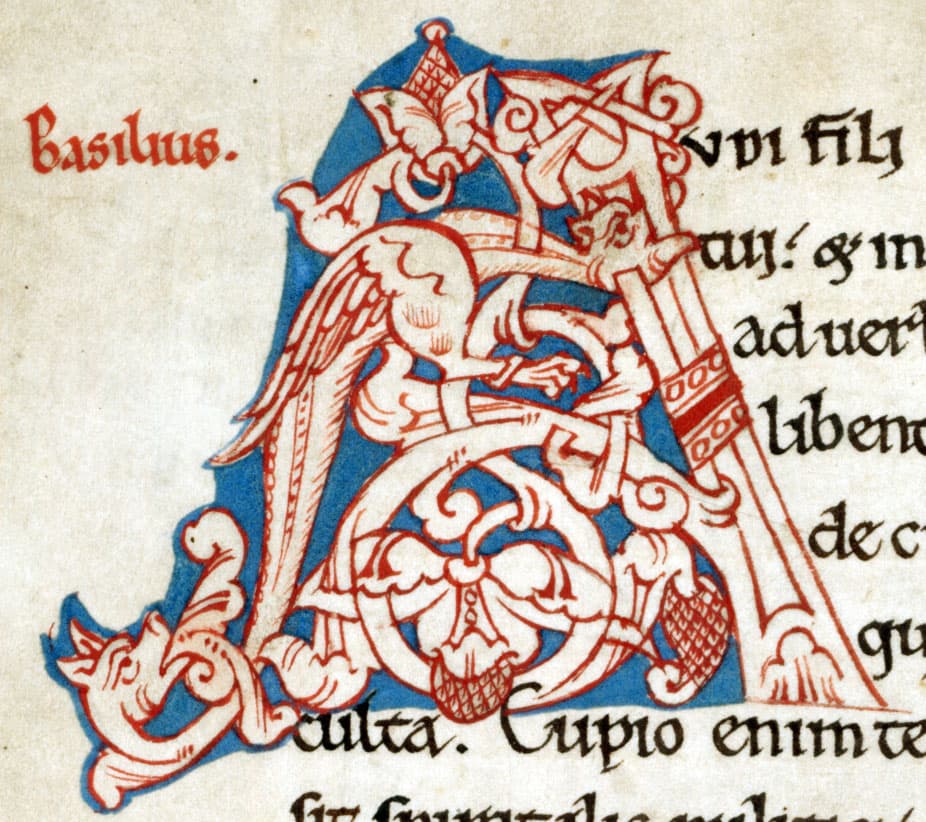 Basilius.
Avdi fili
tui: & in
aduer
liben
de c
qu
culta. Cupio enim te